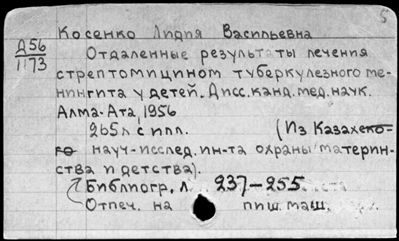 5
Косенко Лидия Васильевна
Д56
1173
Отдаленные результаты лечения
стрептомицином туберкулезного ме-
нингита у детей. Дисс. канд. мед. наук.
Алма-Ата, 1956
265л с илл. (Из Казахско-
го науч-исслед. ин-та охраны материн-
ства и детства).
Библиогр. л. 237-255
Отпеч. на пиш. маш.